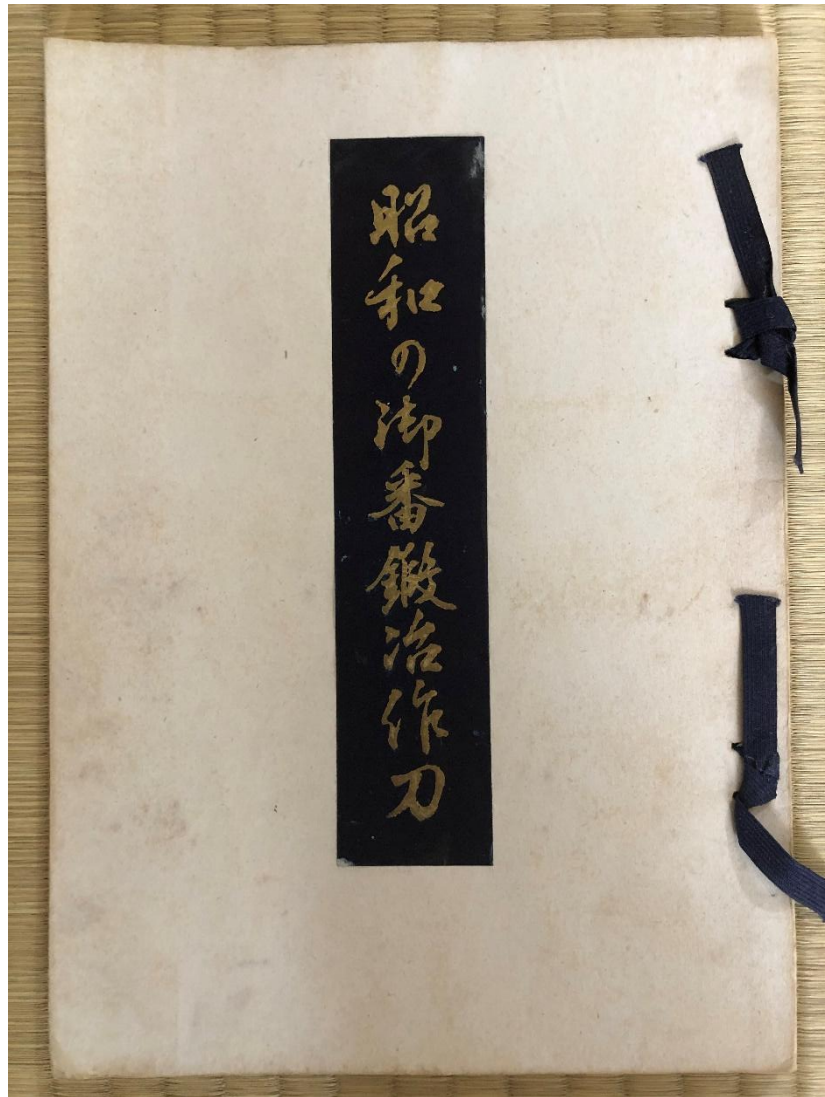 昭和の御番鍛冶作刀